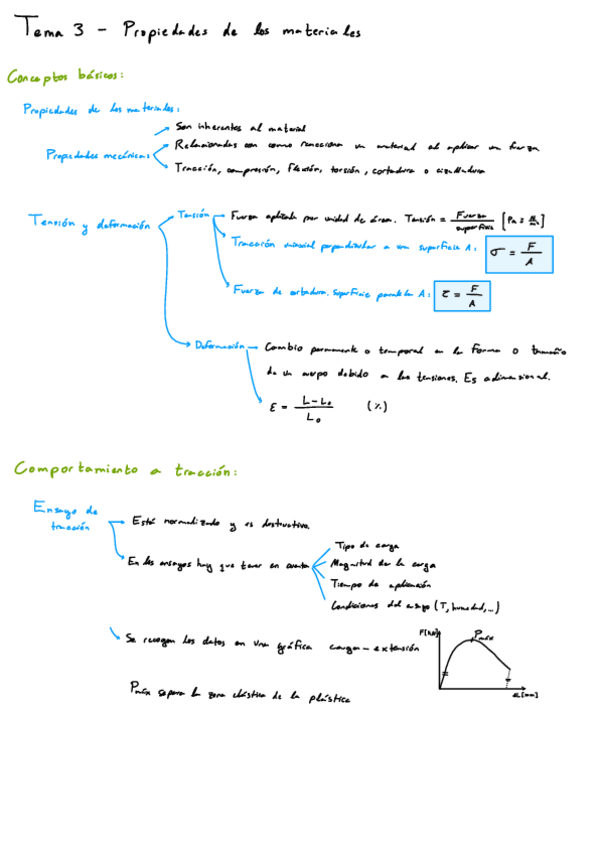 Tema 3 - Propiedades de los materiales
Conceptos básicos:
Propiedades de los materiales:
Propiedades mecánicas
Son inherentes al material
Relacionadas con como reacciona un material al aplicar un fuerza
Tracción, compresión, flexión, torsión, cortadura o cizalladura
Tensión y deformación
Tensión
Fuerza aplicada por unidad de área. Tensión = Fuerza / superficie [Pa = N/m²]
Tracción uniaxial perpendicular a una superficie A:
σ = F / A
Fuerza de cortadura. Superficie paralela A:
τ = F / A
Deformación
Cambio permanente o temporal en la forma o tamaño
de un cuerpo debido a las tensiones. Es adimensional.
ε = L - L₀ / L₀ (%)
Comportamiento a tracción:
Ensayo de
tracción
Está normalizado y es destructivo.
En los ensayos hay que tener en cuenta
Tipo de carga
Magnitud de la carga
Tiempo de aplicación
Condiciones del ensayo (T, humedad, ...)
Se recogen los datos en una gráfica carga - extensión
Pmáx
Pmáx separa la zona elástica de la plástica